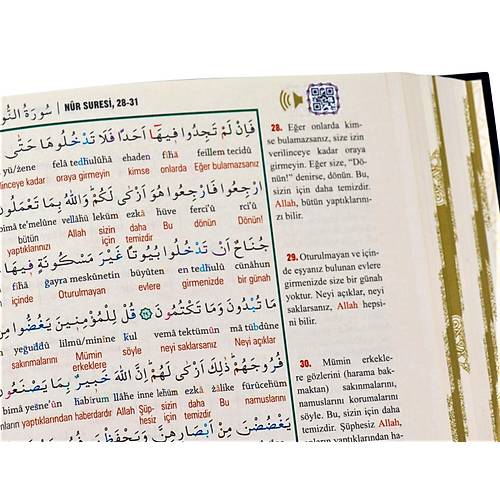 سُورَةُ النُّو | NÛR SURESİ, 28-31
فَإِنْ لَمْ تَجِدُوا فِيهَا أَحَدًا فَلَا تَدْخُلُوهَا حَتّٰى
yü/zene felâ tedhulûhâ ehaden fîhâ feillem tecidû
linceye kadar oraya girmeyin kimse onlarda Eğer bulamazsanız
ارْجِعُوا فَارْجِعُوا هُوَ أَزْكٰى لَكُمْ وَاللّٰهُ بِمَا تَعْمَلُونَ
bimâ te'melûne vellâhü leküm ezkâ hüve ferci'û rci'û
bütün Allah sizin daha Bu dönün Dönün!
yaptıklarınızı için temizdir
جُنَاحٌ أَنْ تَدْخُلُوا بُيُوتًا غَيْرَ مَسْكُونَةٍ فِيهَا
fîhâ ğayra meskûnetin büyûten en tedhulû cünâhun
içinde Oturulmayan evlere girmenizde bir günah
مَا تُبْدُونَ وَمَا تَكْتُمُونَ ﴿٢٩﴾ قُلْ لِلْمُؤْمِنِينَ يَغُضُّوا مِنْ
yeğuddû lilmü/minîne kul vemâ tektümûn mâ tübdûne
sakınmalarını Mümin söyle neyi saklarsanız Neyi açıklar
erkeklere
فُرُوجَهُمْ ذٰلِكَ أَزْكٰى لَهُمْ إِنَّ اللّٰهَ خَبِيرٌ بِمَا يَصْنَعُونَ
bimâ yesne'ûn habîrum llâhe inne lehüm ezkâ zâlike fürûcehüm
onların yaptıklarından haberdardır Allah Şüp- daha Bu namuslarını
hesiz için temizdir
يَغْضُضْنَ مِنْ أَبْصَارِهِنَّ وَيَحْفَظْنَ
28. Eğer onlarda kim-
se bulamazsanız, size izin
verilinceye kadar oraya
girmeyin. Eğer size, "Dö-
nün!" denirse, dönün. Bu,
sizin için daha temizdir.
Allah, bütün yaptıklarını-
zı bilir.
29. Oturulmayan ve için-
de eşyanız bulunan evlere
girmenizde size bir günah
yoktur. Neyi açıklar, neyi
saklarsanız, Allah hepsi-
ni bilir.
30. Mümin erkekle-
re gözlerini (harama bak-
maktan) sakınmalarını,
namuslarını korumalarını
söyle. Bu, sizin için daha
temizdir. Şüphesiz Allah,
onların yaptıklarından ha-